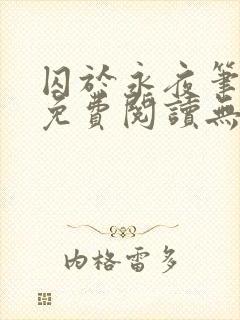 囚於永夜筆
免費閱讀無
內格雷多